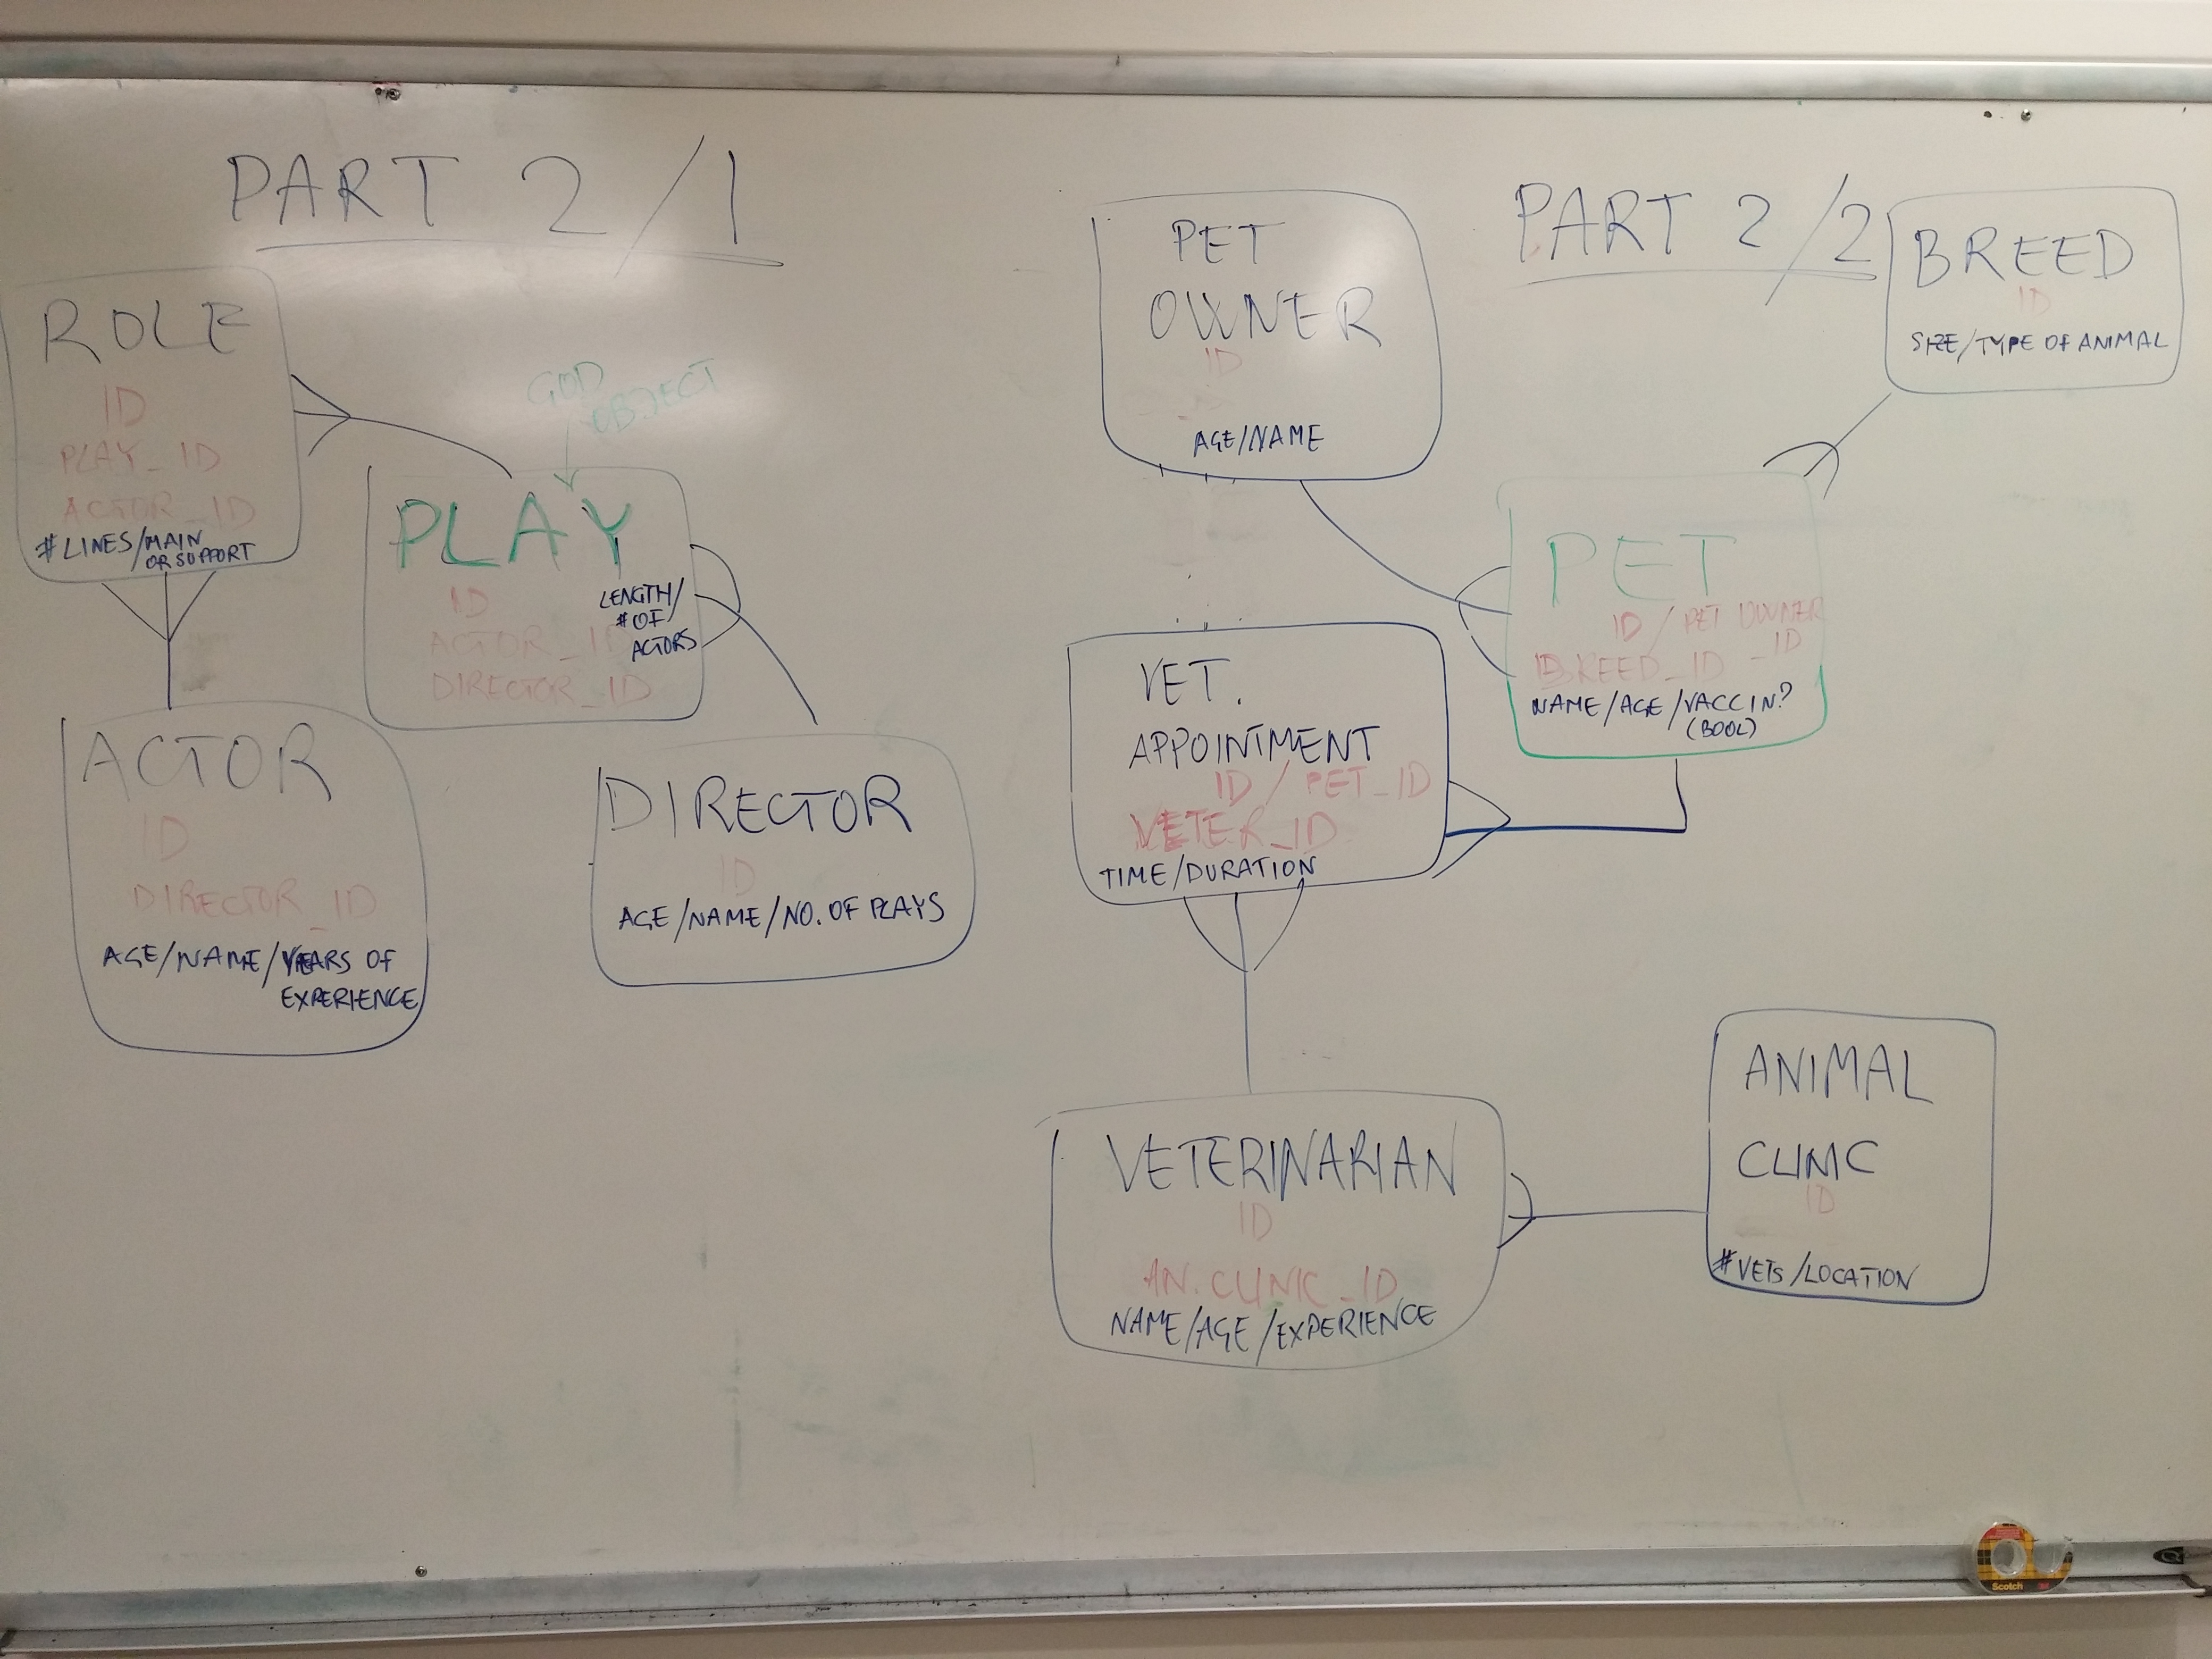 PART 2/1
ROLE
ID
PLAY_ID
ACTOR_ID
# LINES/MAIN
OR SUPPORT
GOD
OBJECT
PLAY
ID
ACTOR_ID
DIRECTOR_ID
LENGTH/
# OF
ACTORS
ACTOR
ID
DIRECTOR_ID
AGE/NAME/YEARS OF
EXPERIENCE
DIRECTOR
ID
AGE/NAME/NO. OF PLAYS
PART 2/2
PET
OWNER
ID
AGE/NAME
BREED
ID
SIZE/TYPE OF ANIMAL
PET
ID / PET OWNER
_ID
BREED_ID
NAME/AGE/VACCIN?
(BOOL)
VET.
APPOINTMENT
ID / PET_ID
VETER_ID
TIME/DURATION
VETERINARIAN
ID
AN. CLINIC_ID
NAME/AGE/EXPERIENCE
ANIMAL
CLINIC
ID
# VETS/LOCATION
Scotch